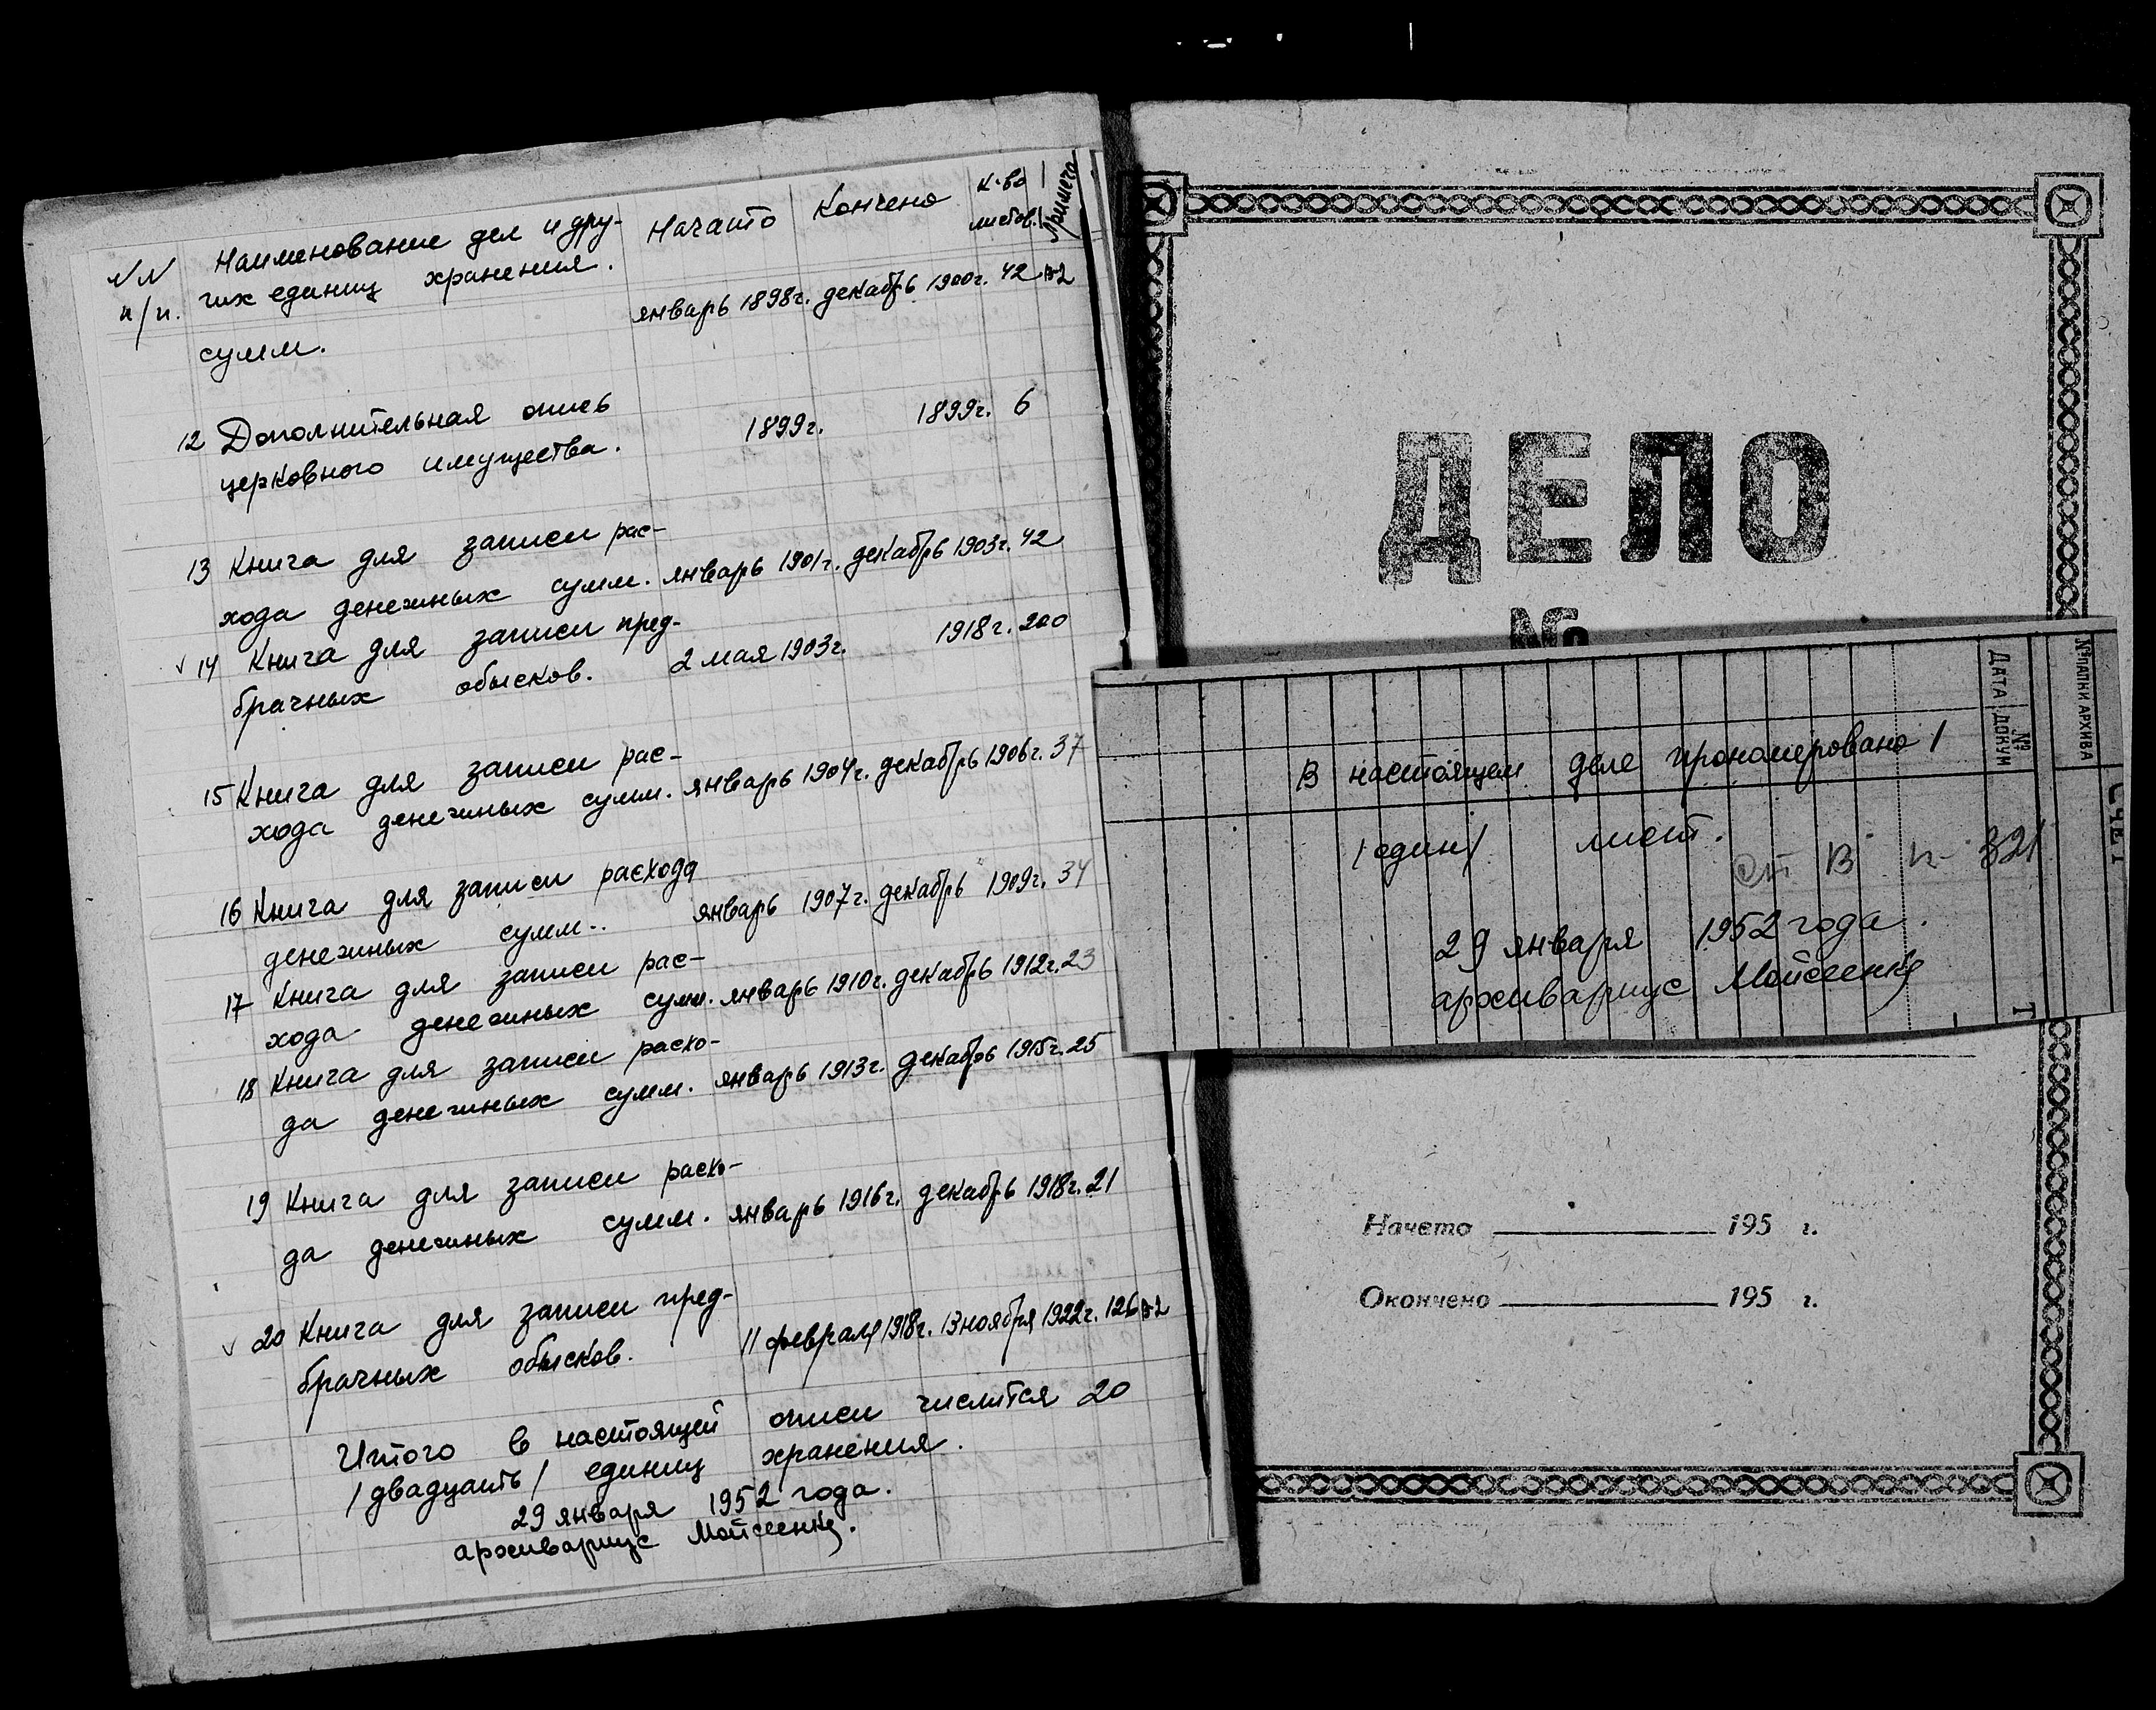 NN Наименование дел и дру- Начато Кончено к-во Примеча
п/п. гих единиц хранения. листов.
сумм. январь 1898г. декабрь 1900г. 42
12 Дополнительная опись 1899г. 1899г. 6
церковного имущества.
13 Книга для записи рас-
хода денежных сумм. январь 1901г. декабрь 1903г. 42
✓ 14 Книга для записи пред-
брачных обысков. 2 мая 1903г. 1918г. 200
15 Книга для записи рас-
хода денежных сумм. январь 1904г. декабрь 1906г. 37
16 Книга для записи расхода
денежных сумм.. январь 1907г. декабрь 1909г. 34
17 Книга для записи рас-
хода денежных сумм. январь 1910г. декабрь 1912г. 23
18 Книга для записи расхо-
да денежных сумм. январь 1913г. декабрь 1915г. 25
19 Книга для записи расхо-
да денежных сумм. январь 1916г. декабрь 1918г. 21
✓ 20 Книга для записи пред-
брачных обысков. 11 февраля 1918г. 13 ноября 1922г. 126
Итого в настоящей описи числится 20
/двадцать/ единиц хранения.
29 января 1952 года.
архивариус Мойсеенко.
ДЕЛО
№
№ ПАПКИ АРХИВА
ДАТА
№ ДОКУМ
СЧЕТ
В настоящем деле прономеровано 1
/один/ лист.
321
29 января 1952 года.
архивариус Мойсеенко
Начето 195 г.
Окончено 195 г.